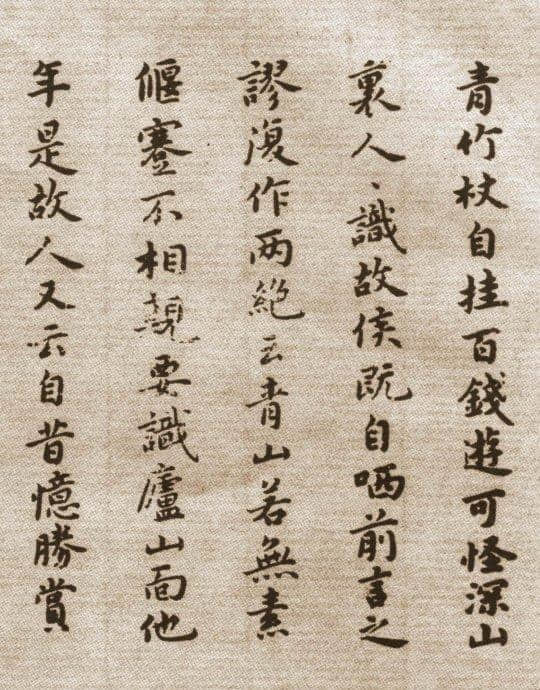 青竹杖自挂百錢遊可怪深山
裏人〻識故侯既自哂前言之
謬復作两絶云青山若無素
偃蹇不相親要識廬山面他
年是故人又云自昔憶勝賞